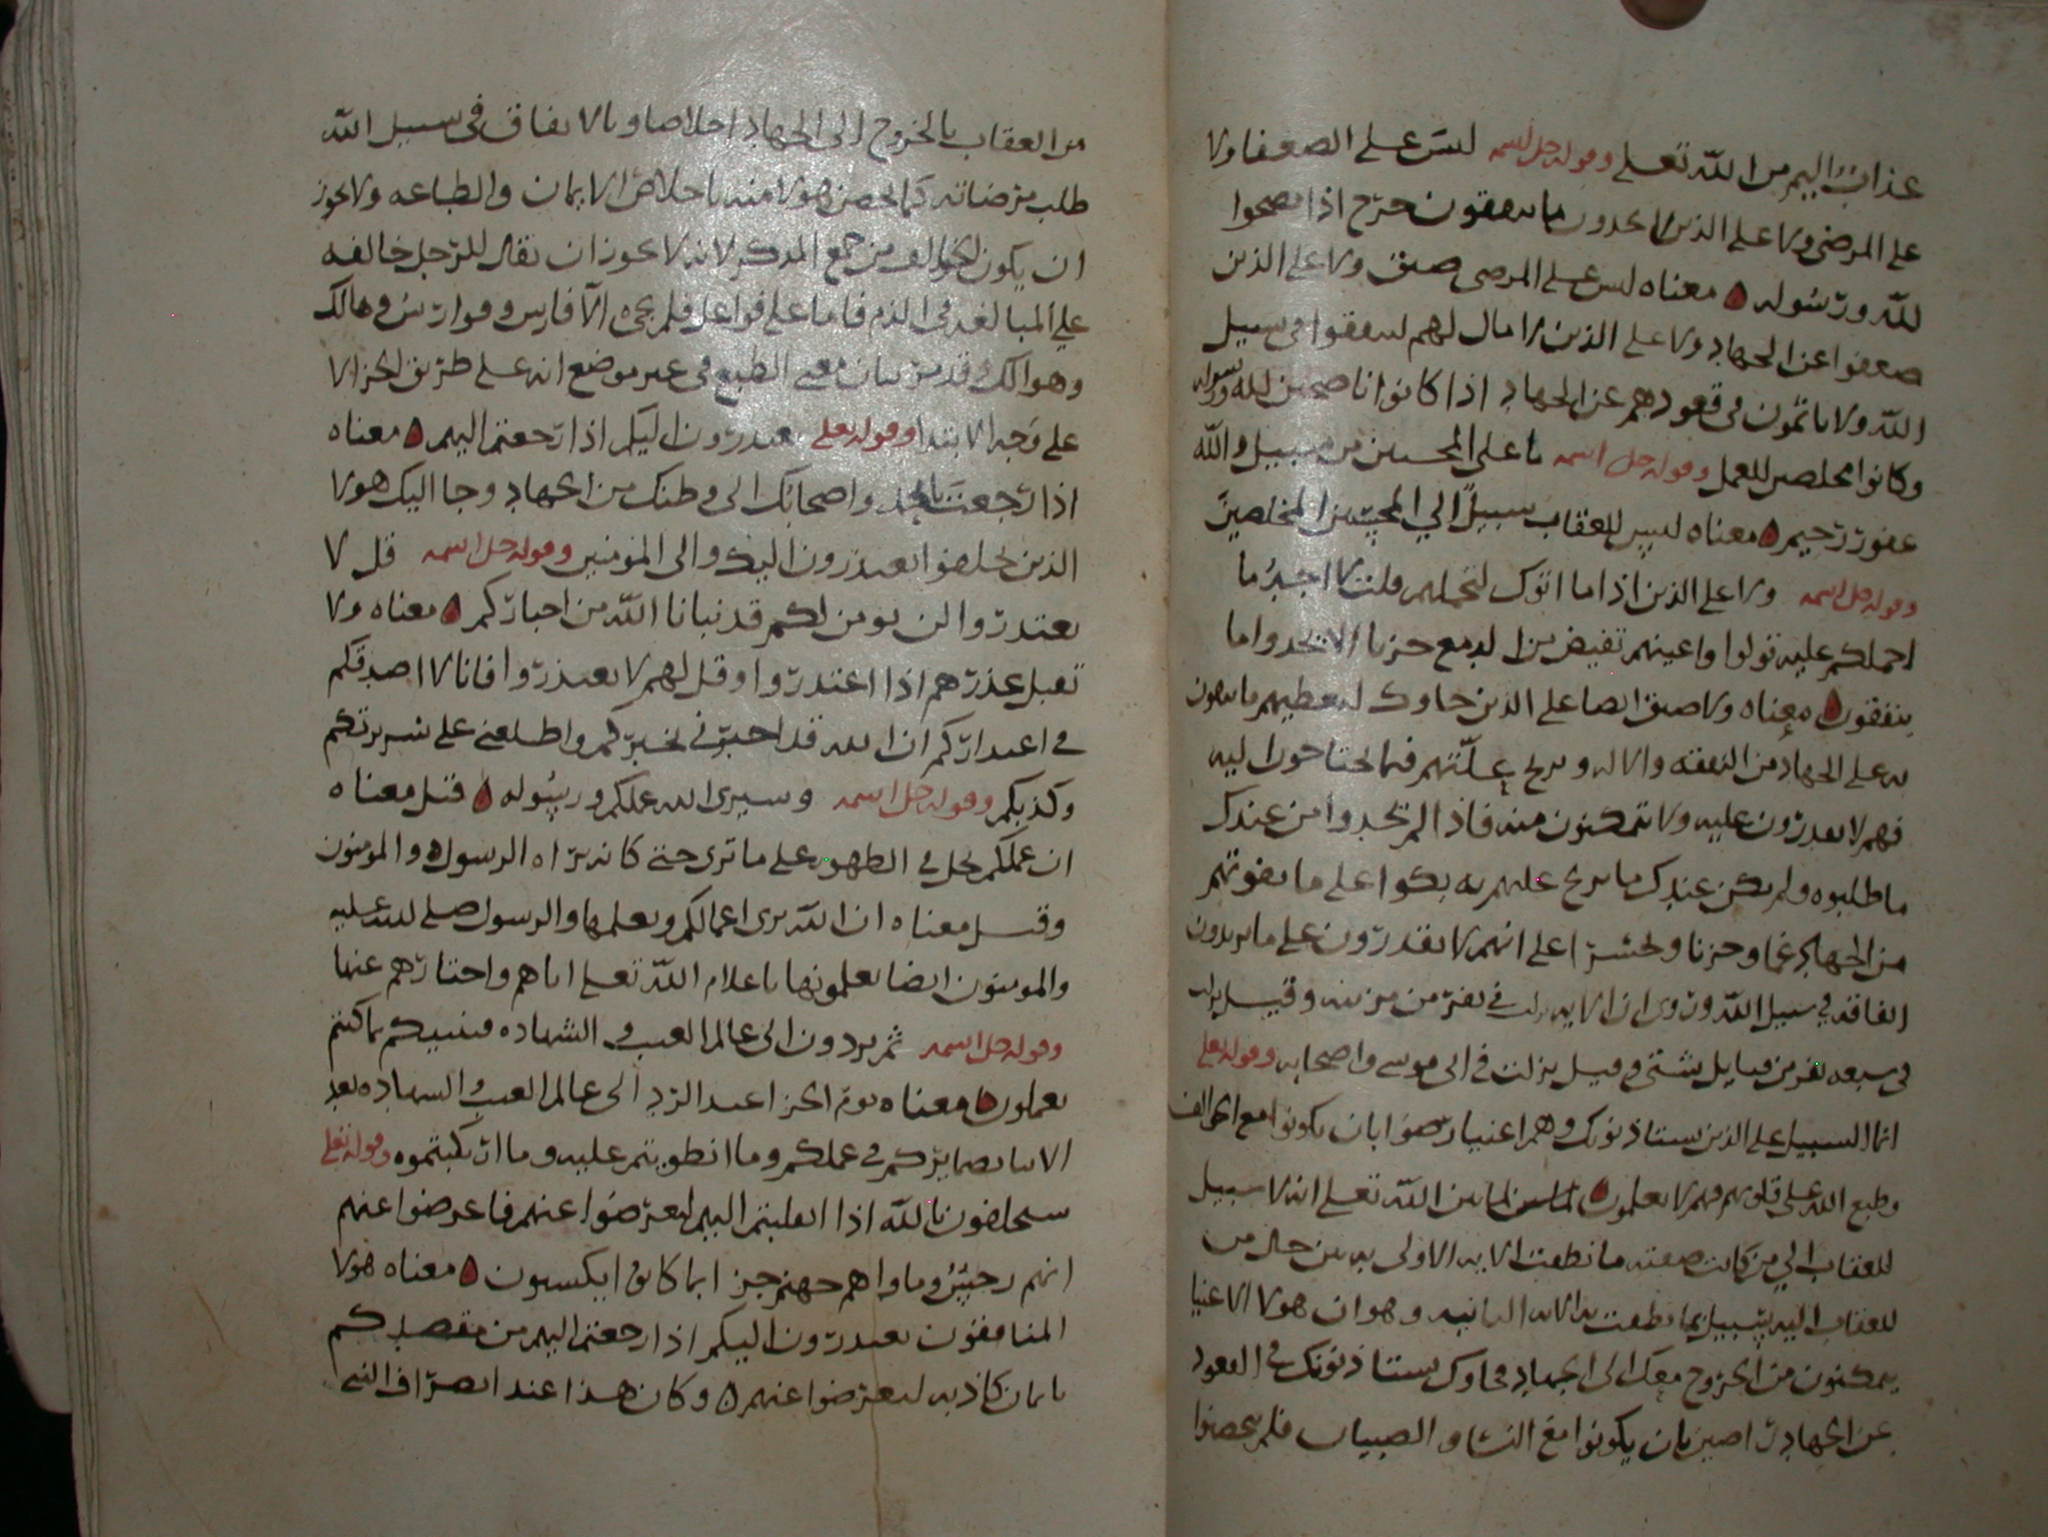 عذاب اليم من الله تعلى وقوله جل اسمه ليس على الضعفا ولا
على المرضى ولا على الذين لا يجدون ما ينفقون حرج اذا نصحوا
لله ورسوله معناه ليس على المرضى ضيق ولا على الذين
ضعفوا عن الجهاد ولا على الذين لا مال لهم لينفقوا في سبيل
الله ولا ياثمون في قعودهم عن الجهاد اذا كانوا ناصحين لله ورسوله
وكانوا مخلصين للعمل وقوله جل اسمه ما على المحسنين من سبيل والله
غفور رحيم معناه ليس للعقاب سبيلا الي المحسنين المخلصين
وقوله جل اسمه ولا على الذين اذا ما اتوك لتحملهم قلت لا اجد ما
احملكم عليه تولوا واعينهم تفيض من الدمع حزنا الا يجدوا ما
ينفقون معناه ولا ضيق ايضا على الذين جاوك لتعطيهم ما
به على الجهاد من النفقه والاله ويزيح علتهم فيما يحتاجون اليه
فهم لا يقدرون عليه ولا يتمكنون منه فاذا لم يجدوا من عندك
ما طلبوه ولم يكن عندك ما يزيح عللهم به بكوا على ما يفوتهم
من الجهاد غما وحزنا وتحسرا على انهم لا يقدرون على ما يريدون
انفاقه في سبيل الله وروى ان الايه نزلت في نفر من مزينه وقيل نزلت
في سبعه نفر من قبايل شتى وقيل نزلت في ابي موسى واصحابه وقوله تعلى
انما السبيل على الذين يستاذنونك وهم اغنيا رضوا بان يكونوا مع الخوالف
وطبع الله على قلوبهم فهم لا يعلمون بين الله تعلى انه لا سبيل
للعقاب الي من كانت صفته ما نطقت الايه الاولى به بين حال من
للعقاب اليه سبيل بما نطقت به الايه الثانيه وهو ان هولا الاغنيا
يتمكنون من الخروج معك الى الجهاد فجاوك يستاذنونك في القعود
عن الجهاد راضين بان يكونوا مع النسا والصبيان فلم يحصنوا
من العقاب بالخروج الى الجهاد اخلاصا وبالانفاق في سبيل الله
طلب مرضاته كما يحصن هولا منه باخلاص الايمان والطاعه ولا يجوز
ان يكون الخوالف من جمع المذكر لانه لا يجوز ان يقال للرجل خالفه
علي المبالغه في الذم فاما على فواعل فلم يجي الا فارس وفوارس وهالك
وهوالك وقد مر بيان معنى الطبع في غير موضع انه على طريق الجزا لا
على وجه الابتدا وقوله تعلى يعتذرون اليكم اذا رجعتم اليهم معناه
اذا رجعت واصحابك الى وطنك من الجهاد وجا اليك هولا
الذين تخلفوا يعتذرون اليك والى المومنين وقوله جل اسمه قل لا
تعتذروا لن نومن لكم قد نبانا الله من اخباركم معناه ولا
تقبل عذرهم اذا اعتذروا وقل لهم لا تعتذروا فانا لا اصدقكم
في اعتذاركم ان الله قد اخبرني بخبركم واطلعني على سريرتكم
وكذبكم وقوله جل اسمه وسيرى الله عملكم ورسوله قيل معناه
ان عملكم يحل في الظهور على ما ترى حتى كانه يراه الرسول والمومنون
وقيل معناه ان الله يرى اعمالكم ويعلمها والرسول صلى الله عليه
والمومنون ايضا يعلمونها باعلام الله تعلى اياهم واخبارهم عنها
وقوله جل اسمه ثم تردون الى عالم الغيب والشهاده فينبيكم بما كنتم
تعملون معناه يوم الجزا عند الرد الى عالم الغيب والشهاده يقع
بضمايركم في عملكم وما انطويتم عليه وما ارتكبتموه وقوله تعلى
سيحلفون بالله اذا انقلبتم اليهم لتعرضوا عنهم فاعرضوا عنهم
انهم رجس وماواهم جهنم جزا بما كانوا يكسبون معناه هولا
المنافقون يعتذرون اليكم اذا رجعتم اليهم من مقصدكم
بايمان كاذبه لتعرضوا عنهم وكان هذا عند انصراف النبي